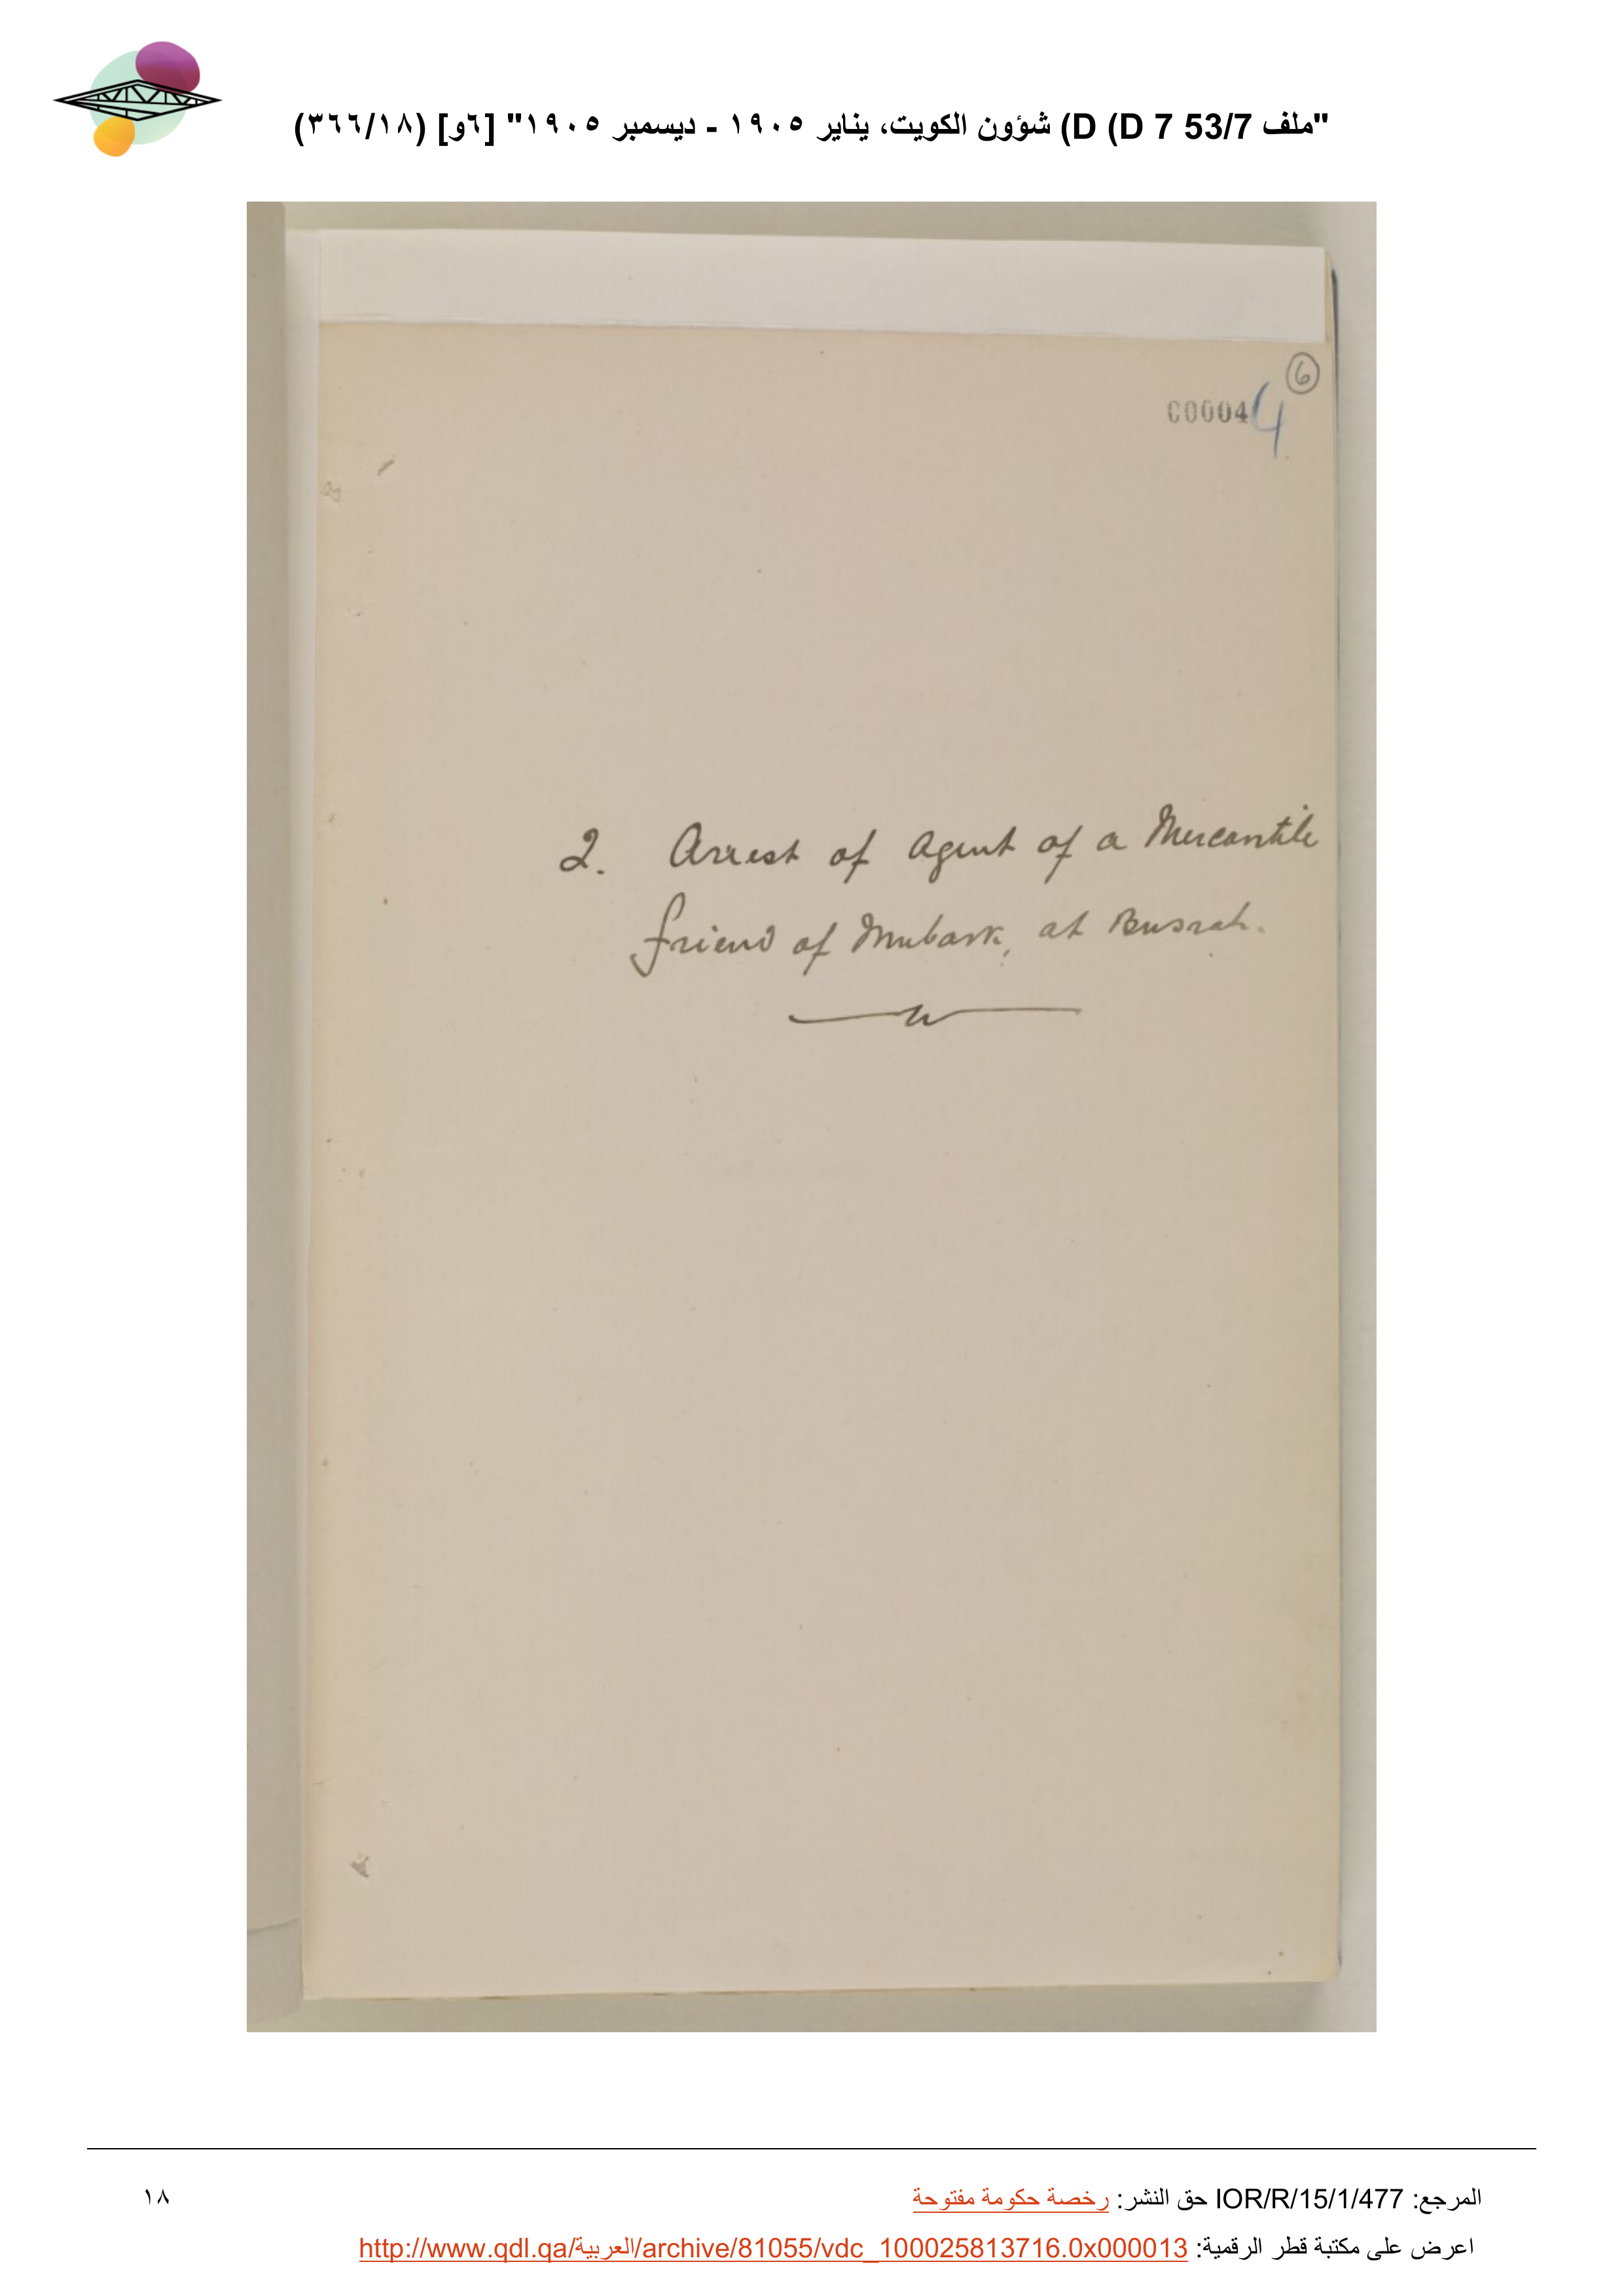 "ملف 53/7 D 7) D) شؤون الكويت، يناير ١٩٠٥ - ديسمبر ١٩٠٥" [٦و] (٣٦٦/١٨)
6
C0004 4
2. Arrest of Agent of a Mercantile
friend of Mubark, at Busrah.
المرجع: IOR/R/15/1/477 حق النشر: رخصة حكومة مفتوحة
١٨
اعرض على مكتبة قطر الرقمية: http://www.qdl.qa/العربية/archive/81055/vdc_100025813716.0x000013